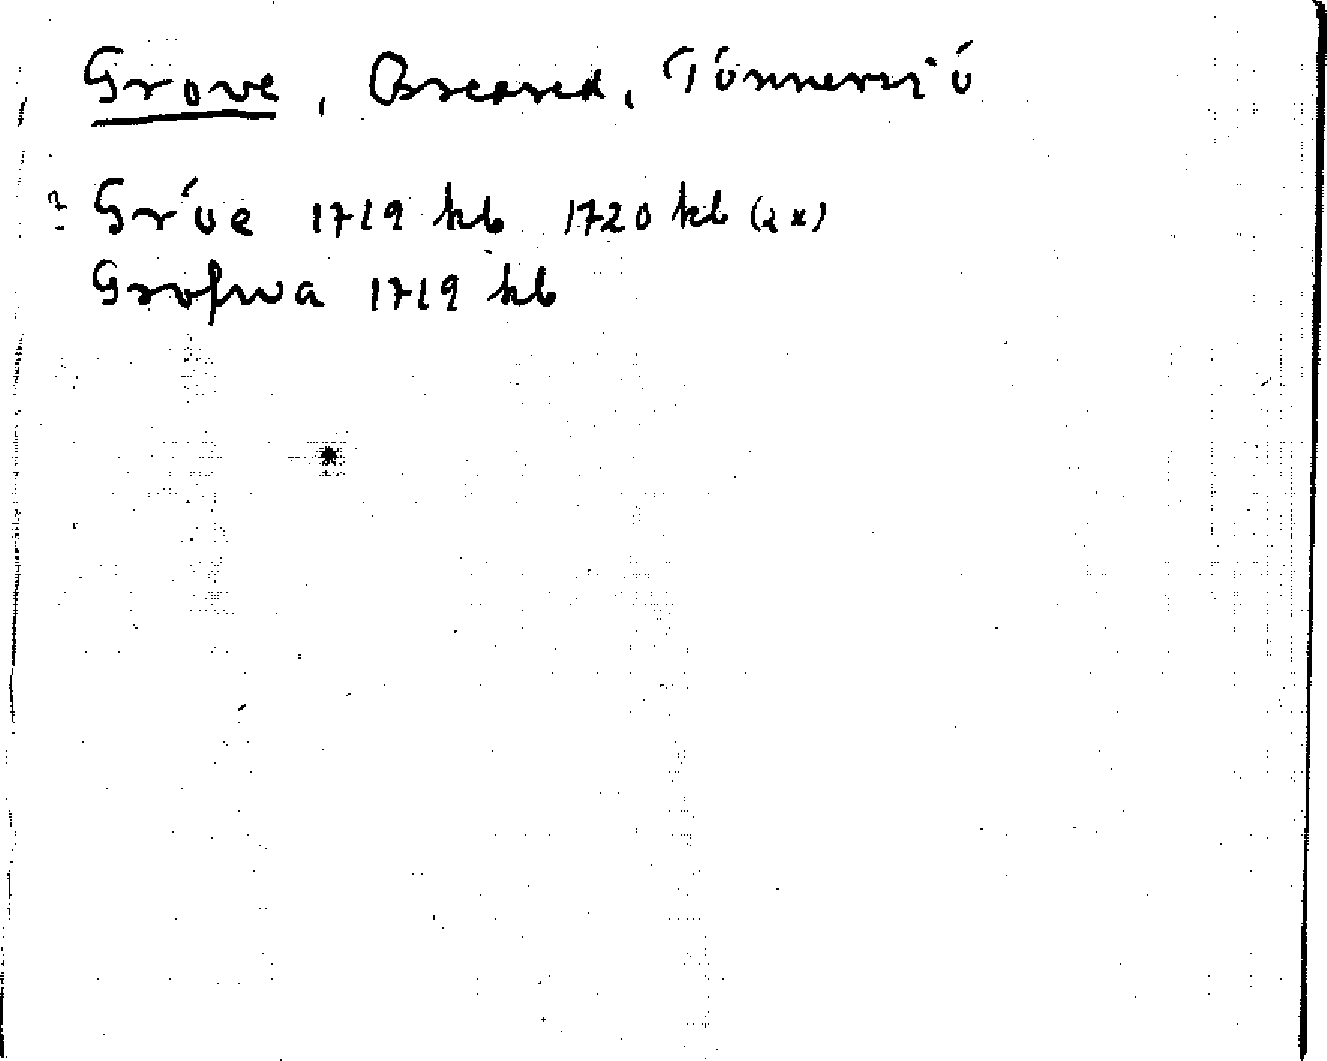 Grove, Breared, Tönnersjö
? Gröve 1719 kb 1720 kb (2x)
Grofwa 1719 kb